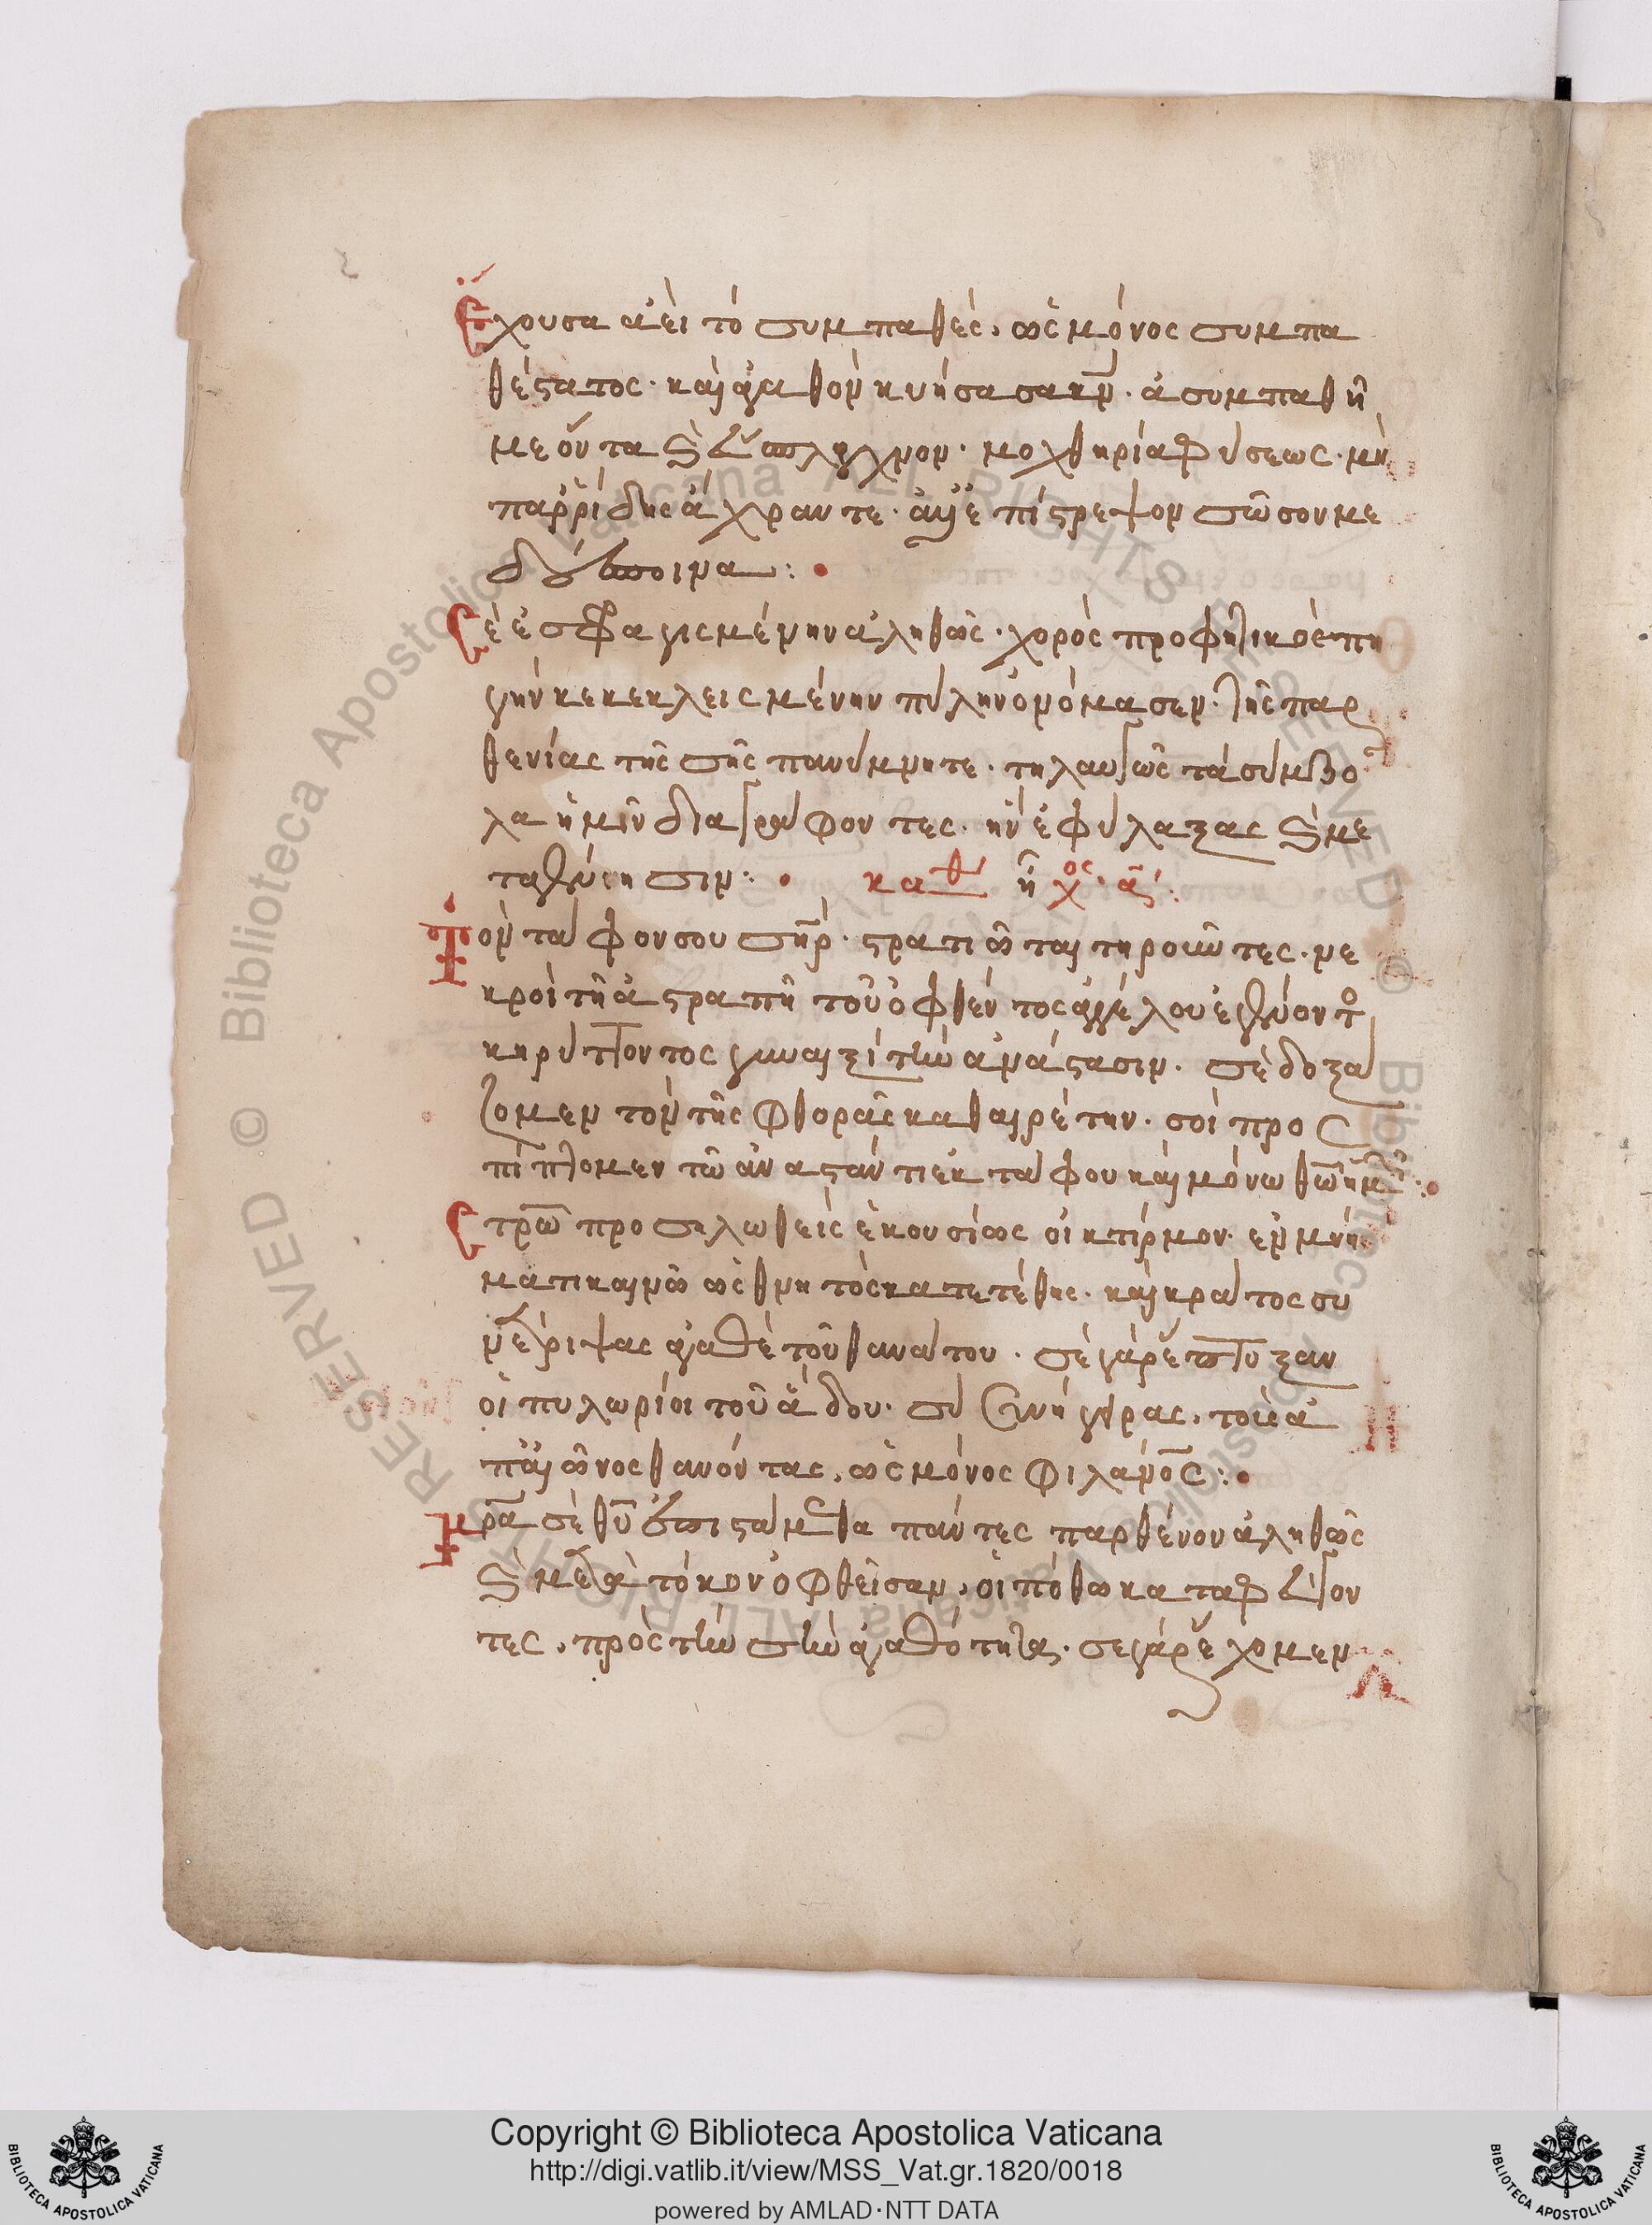 Ἔχουσα ἀεὶ τὸ συμπαθὲς, ὡς μόνος συμπα
θέστατος· καὶ ἀγαθὸν κυήσασα κν· ἀσυμπαθῆ
με ὄντα καὶ ἄσπλαγχνον· μοχθηρία φύσεως· μὴ
παρρίδης ἄχραντε· ἀλλ' ἐπίστρεψον σῶσον με
δέσποινα:
Σὲ ἐσφαγισμένην ἀληθῶς· χορὸς προφητικὸς πη
γήν κεκεκλεισμένην πύλην ὀνόμασεν· τῆς παρ
θενίας τῆς σῆς πανύμνητε· τηλαυγῶς τὰ σύμβο
λα ἡμῖν διαγράφοντες· ἣν ἐφύλαξας καὶ με
τα γέννησιν: καθ ἦχος· α
Τὸν τάφον σου σηρ· στρατιῶται τηροῦντες· νε
κροὶ τῆ ἀστραπῆ τοῦ ὀφθέντος ἀγγέλου ἐγένοντο
κηρύττοντος γυναιξὶ τὴν ἀνάστασιν· σὲ δοξά
ζομεν τὸν τῆς φθορᾶς καθαιρέτην· σοὶ προσ
πίπτομεν τῶ ἀναστάντι ἐκ τάφου καὶ μόνω θω ἡμῶν:
Στρω προσηλωθεὶς ἑκουσίως οἰκτίρμον· ἐν μνή
ματι καινῶ ὡς θνητὸς κατετέθης· καὶ κράτος συ
νέτριψας ἀγαθὲ τοῦ θανάτου· σὲ γὰρ ἔπτυξαν
οἱ πυλωρίοι τοῦ ἅδου· συ συνήγειρας, τοὺς ἀ
π' αἰῶνος θανόντας, ὡς μόνος φιλάνος:
Μρα σὲ θυ ἐπιστάμεθα πάντες παρθένον ἀληθῶς
καὶ μετὰ τόκον ὀφθεῖσαν, οἱ πόθω καταφεύγον
τες, πρὸς τὴν σὴν ἀγαθότητα· σε γὰρ ἔχομεν
Copyright © Biblioteca Apostolica Vaticana
http://digi.vatlib.it/view/MSS_Vat.gr.1820/0018
powered by AMLAD·NTT DATA